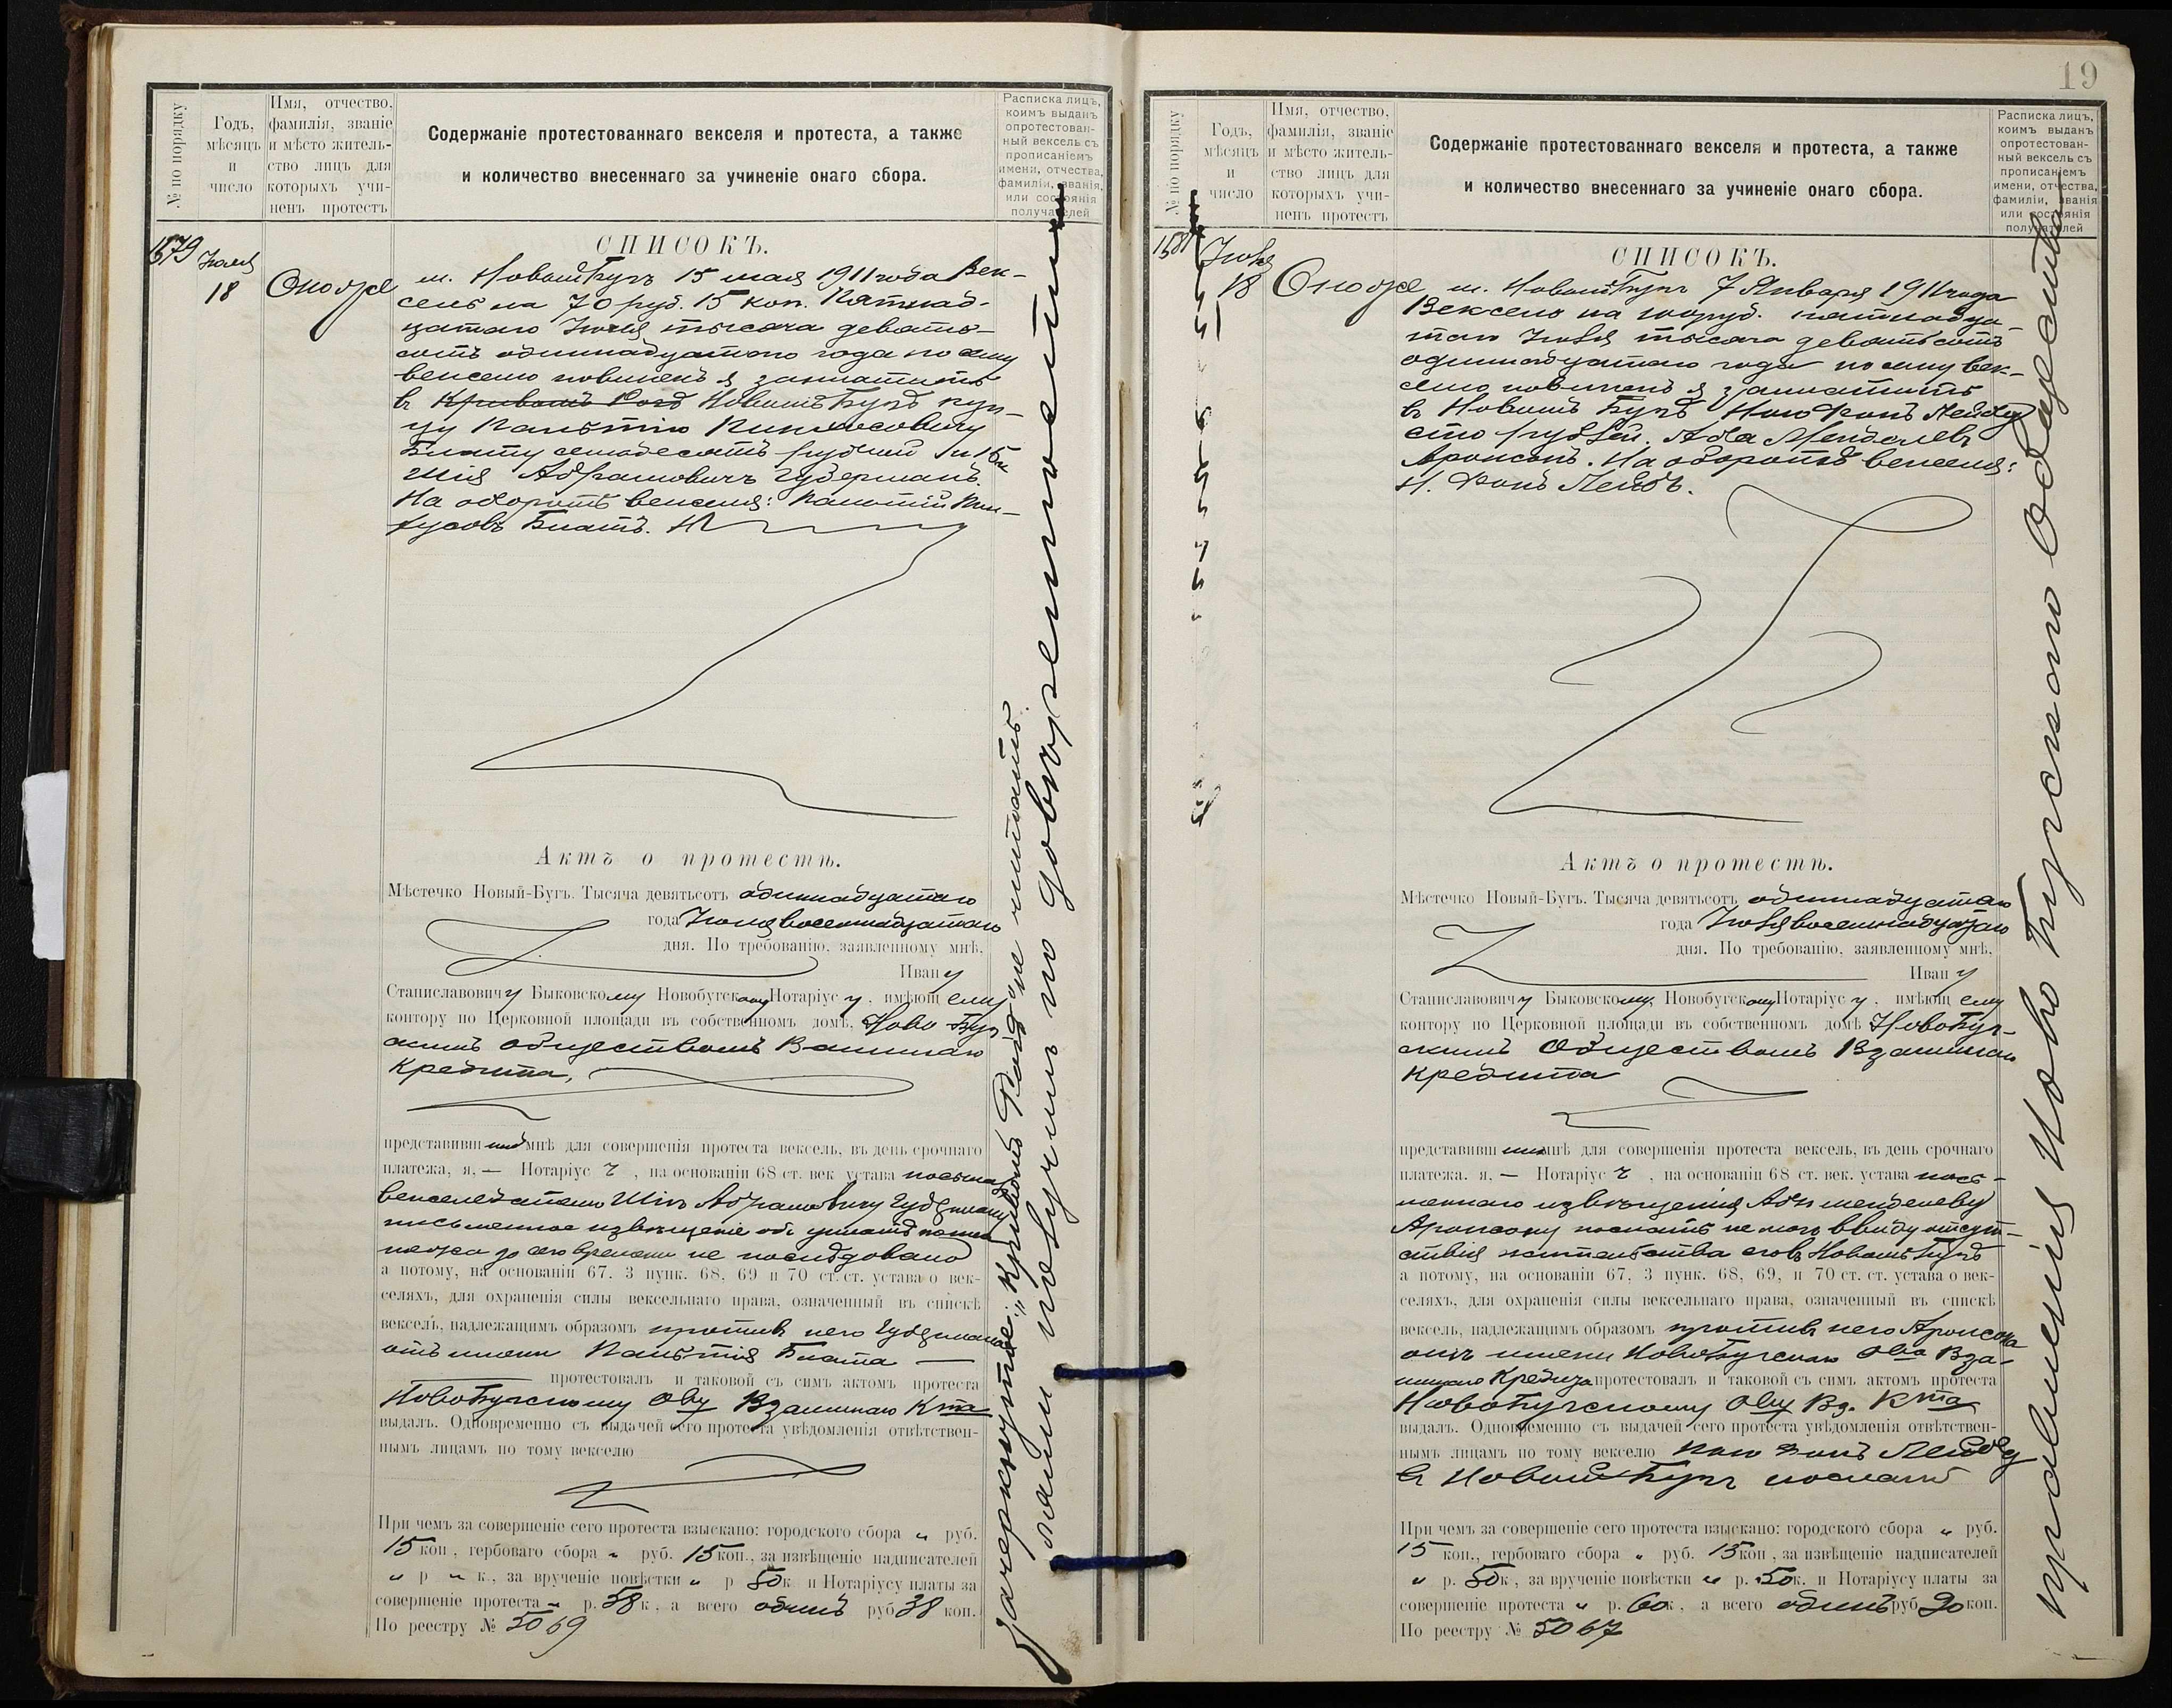 № по порядку
Годъ, мѣсяцъ и число
Имя, отчество, фамилія, званіе и мѣсто жительство лицъ для которыхъ учиненъ протестъ
Содержаніе протестованнаго векселя и протеста, а также
и количество внесеннаго за учиненіе онаго сбора.
Расписка лицъ, коимъ выданъ опротестованный вексель съ прописаніемъ имени, отчества, фамиліи, званія, или состоянія получателей
1579
Іюля
18
Оно же
СПИСОКЪ.
м. Новый Бугъ 15 мая 1911 года Век-
сель на 70 руб. 15 коп. Пятнад-
цатаго Іюля тысяча девять-
сотъ одиннадцатаго года по сему
векселю повиненъ я заплатить
въ Кривомъ Розѣ Новомъ Бугѣ куп-
цу
Блату семьдесятъ рублей и 15 к
Шія Абрамовичъ Губерманъ.
На оборотѣ векселя:
Блатъ.
Актъ о протестѣ.
Мѣстечко Новый-Бугъ. Тысяча девятьсотъ одиннадцатаго
года Іюля восемнадцатаго
дня. По требованію, заявленному мнѣ,
Ивану
Станиславовичу Быковскому Новобугскому Нотаріусу, имѣющему
контору по Церковной площади въ собственномъ домѣ, Ново-Буг-
скимъ обществомъ Взаимнаго
Кредита,
представившимъ мнѣ для совершенія протеста вексель, въ день срочнаго
платежа, я, — Нотаріусъ, на основаніи 68 ст. век устава
векселедателю Шіи Абрамовичу Губерману
письменное извѣщеніе объ уплатѣ
до сего времени не послѣдовало
а потому, на основаніи 67. 3 пунк. 68, 69 и 70 ст. ст. устава о век-
селяхъ, для охраненія силы вексельнаго права, означенный въ спискѣ
вексель, надлежащимъ образомъ противъ него Губермана
отъ имени Блата —
протестовалъ и таковой съ симъ актомъ протеста
НовоБугскому Обву Взаимнаго Кта
выдалъ. Одновременно съ выдачей сего протеста увѣдомленія отвѣтствен-
нымъ лицамъ по тому векселю
При чемъ за совершеніе сего протеста взыскано: городского сбора „ руб.
15 коп., гербоваго сбора „ руб. 15 коп., за извѣщеніе надписателей
„ р „ к., за врученіе повѣстки „ р 50 к. и Нотаріусу платы за
совершеніе протеста „ р. 58 к, а всего одинъ руб 38 коп.
По реестру № 5069
зачеркнутое: „Кривомъ Розѣ" не читать.
получилъ по довѣренности
19
№ по порядку
Годъ, мѣсяцъ и число
Имя, отчество, фамилія, званіе и мѣсто жительство лицъ для которыхъ учиненъ протестъ
Содержаніе протестованнаго векселя и протеста, а также
и количество внесеннаго за учиненіе онаго сбора.
Расписка лицъ, коимъ выданъ опротестованный вексель съ прописаніемъ имени, отчества, фамиліи, званія или состоянія получателей
Іюля
18
Оно же
СПИСОКЪ.
м. Новый Бугъ 7 Января 1911 года
Вексель на 100 руб. пятнадца-
таго Іюля тысяча девятьсотъ
одиннадцатаго года по сему век-
селю повиненъ я заплатить
въ Новомъ Бугѣ Фонъ Лейбу
сто рублей. Аба Менделевъ
Аронсонъ. На оборотѣ векселя:
Фонъ Лейбъ.
Актъ о протестѣ.
Мѣстечко Новый-Бугъ. Тысяча девятьсотъ одиннадцатаго
года Іюля восемнадцатаго
дня. По требованію, заявленному мнѣ,
Ивану
Станиславовичу Быковскому, Новобугскому Нотаріусу, имѣющему
контору по Церковной площади въ собственномъ домѣ НовоБуг-
скимъ Обществомъ Взаимнаго
Кредита
представившимъ мнѣ для совершенія протеста вексель, въ день срочнаго
платежа. я, — Нотаріусъ, на основаніи 68 ст. век. устава пись-
меннаго извѣщенія Абѣ Менделеву
Аронсону послать не могъ ввиду отсут-
ствія жительства его въ Новомъ Бугѣ
а потому, на основаніи 67, 3 пунк. 68, 69, и 70 ст. ст. устава о век-
селяхъ, для охраненія силы вексельнаго права, означенный въ спискѣ
вексель, надлежащимъ образомъ противъ него Аронсона
отъ имени НовоБугскаго Обва Вза-
имнаго Кредита протестовалъ и таковой съ симъ актомъ протеста
НовоБугскому Обву Вз. Кта
выдалъ. Одновременно съ выдачей сего протеста увѣдомленія отвѣтствен-
нымъ лицамъ по тому векселю Фонъ Лейбу
въ Новый Бугъ послано
При чемъ за совершеніе сего протеста взыскано: городского сбора „ руб.
15 коп., гербоваго сбора „ руб. 15 коп, за извѣщеніе надписателей
„ р. 50 к, за врученіе повѣстки „ р. 50 к. и Нотаріусу платы за
совершеніе протеста „ р. 60 к, а всего одинъ руб 90 коп.
По реестру № 5067
правленія Ново Бугскаго Общества